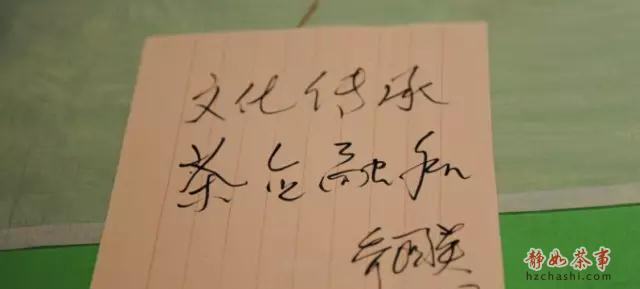 文化传承
茶企融和
静如茶事
hzchashi.com